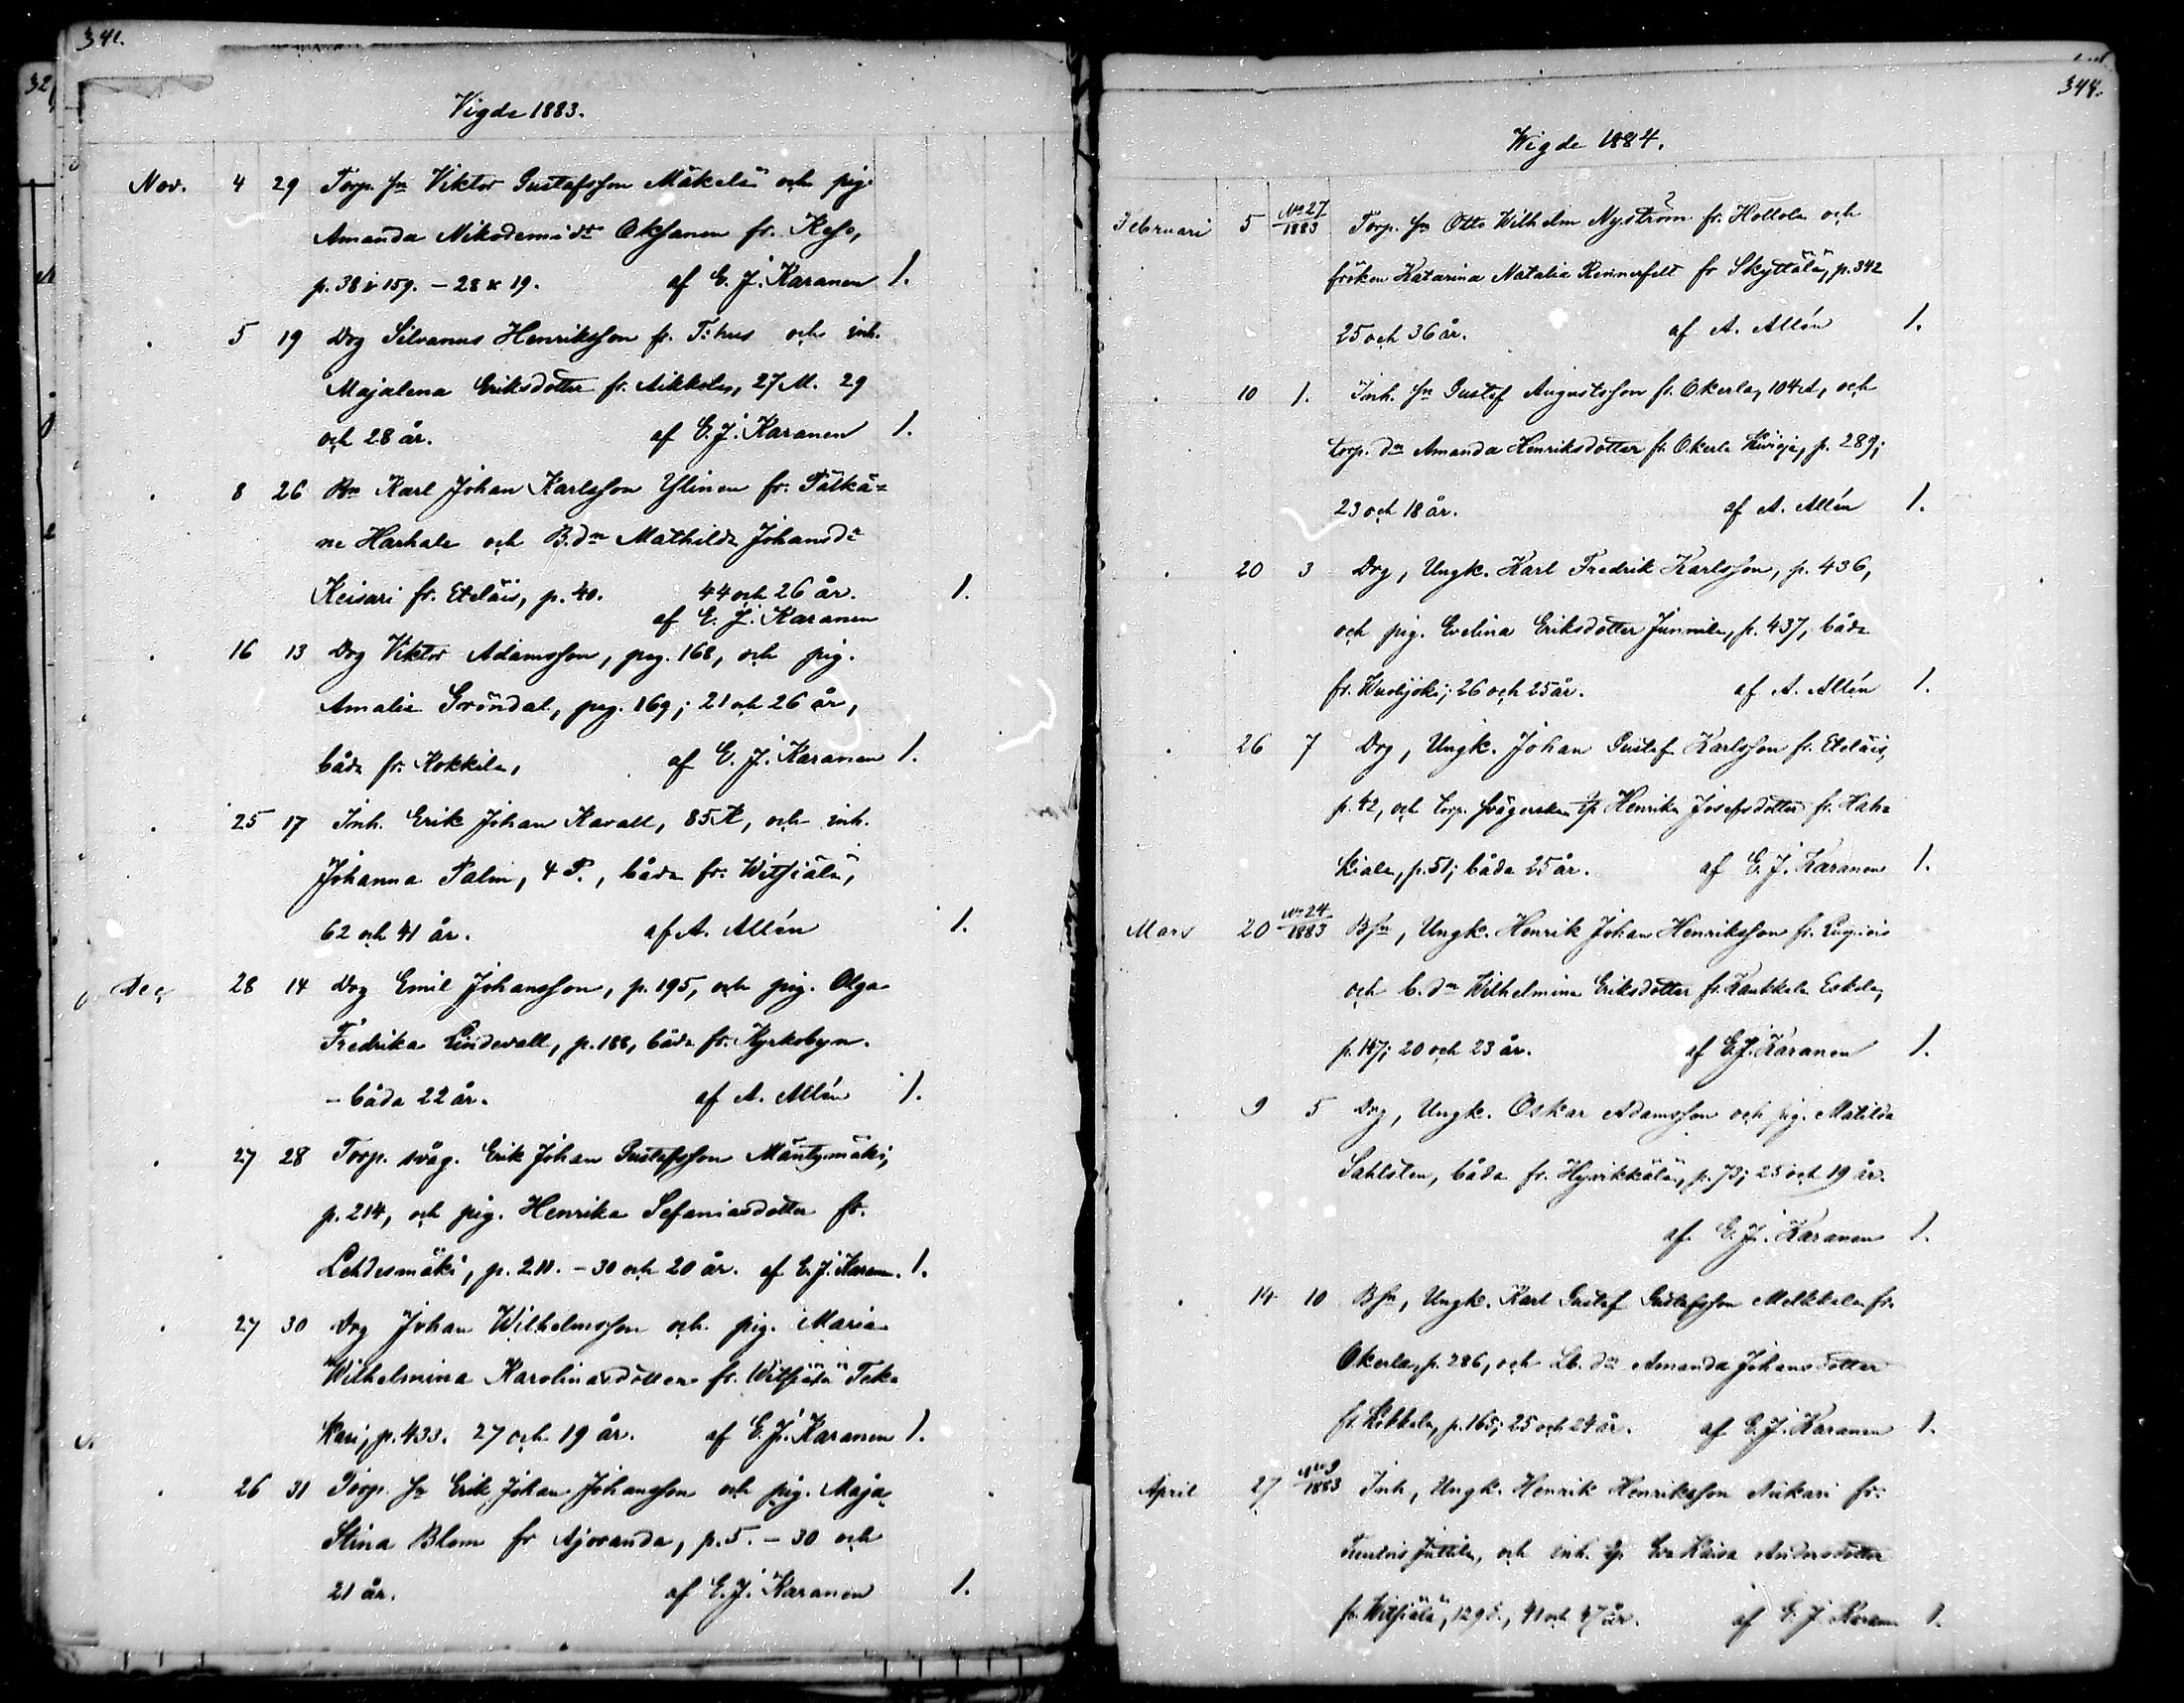 341.
32
Vigde 1883.
Nov. 4 29 Torp. sn Viktor Gustafsson Mäkelä och pig.
Amanda Nikodemidr Oksanen fr. Keso,
p. 38 i 159. - 28 & 19. af E. J. Karanen 1.
5 19 Drg Silvanus Henriksson fr. Tihus och inh.
Majalena Eriksdotter fr. Aikkala, 27 M. 29
och 28 år. af E. J. Karanen 1.
8 26 Bn Karl Johan Karlsson Ylinen fr. Pälkä-
ne Harhala och B.dn Mathilda Johansdr
Keisari fr. Eteläis, p. 40. 44 och 26 år. 1.
af E. J. Karanen
16 13 Drg Viktor Adamsson, pag. 168, och pig.
Amalia Gröndal, pag. 169; 21 och 26 år,
båda fr. Kokkila, af E. J. Karanen 1.
25 17 Inh. Erik Johan Kavall, 85 K, och inh.
Johanna Palm, 4 P., båda fr. Witsiälä,
62 och 41 år. af A. Allén 1.
Dec 28 14 Drg Emil Johansson, p. 195, och pig. Olga
Fredrika Lindevall, p. 188, båda fr. Kyrkobyn.
- båda 22 år. af A. Allén 1.
27 28 Torp. svåg. Erik Johan Gustafsson Mäntymäki,
p. 214, och pig. Henrika Sefaniasdotter fr.
Lehdesmäki, p. 211. - 30 och 20 år. af E. J. Karanen. 1.
27 30 Drg Johan Wilhelmsson och pig. Maria
Wilhelmina Karolinasdotter fr. Witsiälä Teka
kari, p. 433. 27 och 19 år. af E. J. Karanen 1.
26 31 Torp. sn Erik Johan Johansson och pig. Maja
Stina Blom fr Ajoranda, p. 5. - 30 och
21 år. af E. J. Karanen 1.
344.
Wigde 1884.
Februari 5 No 27/1883 Torp. sn Otto Wilhelm Nyström ? fr. Hollola och
fröken Katarina Natalia Rennerfelt fr Skyttälä, p. 342
25 och 36 år. af A. Allén 1.
10 1. Inh. sn Gustaf Augustsson fr. Okerla, 104 A, och
torp. dn Amanda Henriksdotter fr. Okerla p. 289;
23 och 18 år. af A. Allén 1.
20 3 Drg, Ungk. Karl Fredrik Karlsson, p. 436,
och pig. Evelina Eriksdotter Junnila, p. 437, båda
fr. Wuolijoki; 26 och 25 år. af A. Allén 1.
26 7 Drg, Ungk. Johan Gustaf Karlsson fr. Eteläis,
p. 42, och torp. svägerskan Henrika Josefsdotter fr. Haha
kiala, p. 51; båda 25 år. af E. J. Karanen 1.
Mars 20 No 24/1883 Bsn, Ungk. Henrik Johan Henriksson fr.
och b. dn Wilhelmina Eriksdotter fr. Kankkala Eskola,
p. 147; 20 och 23 år. af E. J. Karanen 1.
9 5 Drg, Ungk. Oskar Adamsson och pig. Matilda
Sahlsten, båda fr. Hyvikkälä, p. 73; 25 och 19 år.
af E. J. Karanen 1.
14 10 Bsn, Ungk. Karl Gustaf Gustafsson Melkkala fr.
Okerla, p. 286, och Lb. dn Amanda Johansdotter
fr. Kokkala, p. 165; 25 och 24 år. af E. J. Karanen 1.
April 27 No 9/1883 Inh, Ungk. Henrik Henriksson Niikari fr.
Tuulois Juttila, och inh. Eva Kaisa Andersdotter
fr. Witsiälä, 129 S., 41 och 47 år. af E. J. Karanen 1.